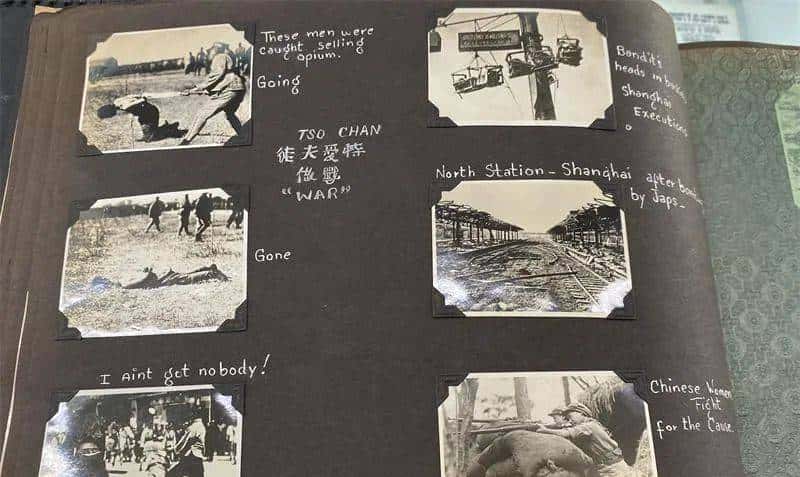 These men were
caught selling
opium.
Going
TSO CHAN
夫愛
做戰
"WAR"
Gone
I Aint got nobody!
Bandit's
heads in
Shanghai
Executions
North Station - Shanghai after
by Japs_
Chinese Women
Fight
for the Cause.